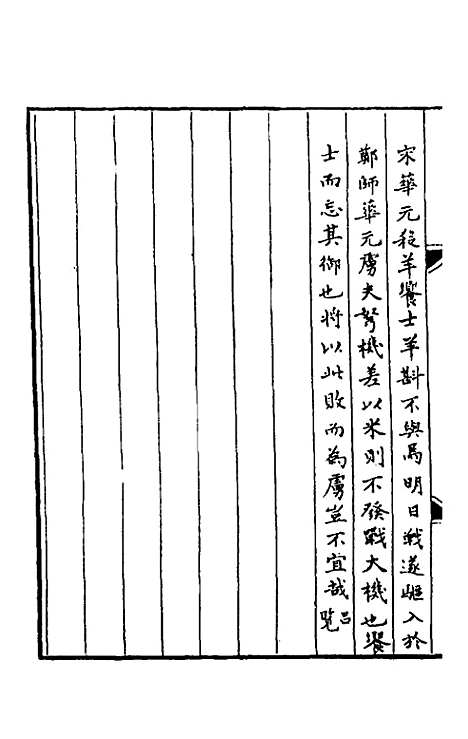 宋華元殺羊饗士羊斟不與焉明日戰遂驅入於
鄭師華元虜夫弩機差以米則不發戰大機也饗
士而忘其御也將以此敗而為虜豈不宜哉呂覽